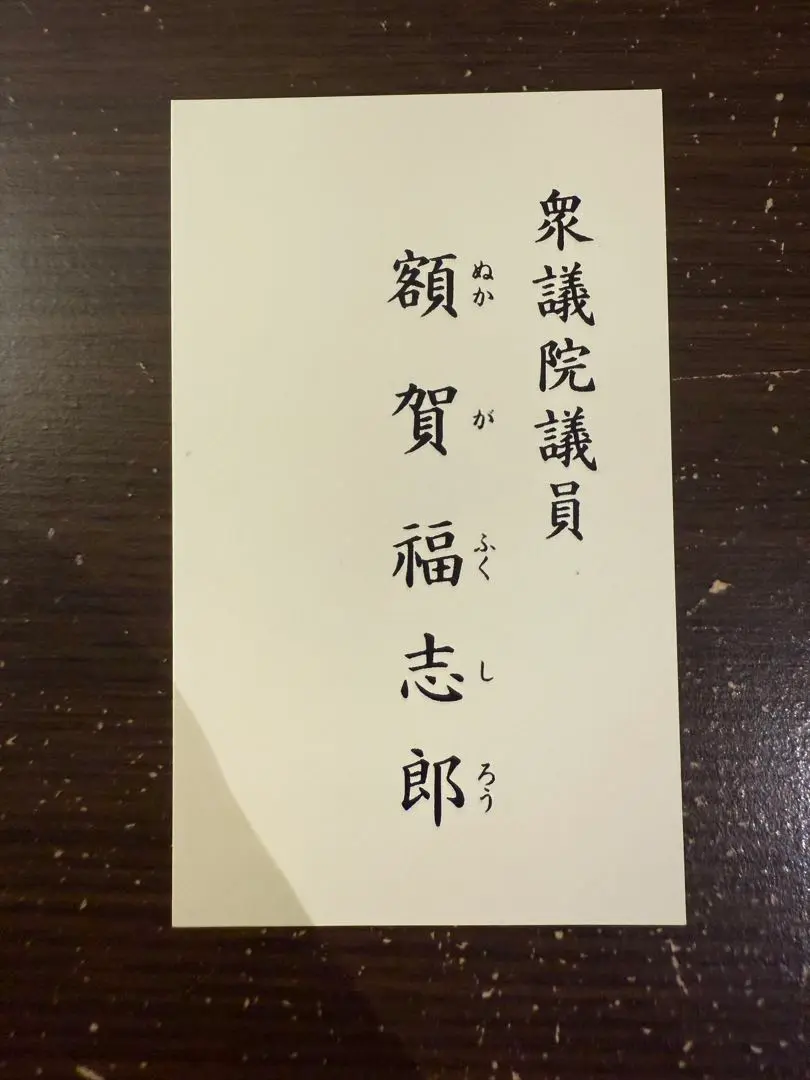 衆議院議員
額賀福志郎
ぬかがふくしろう